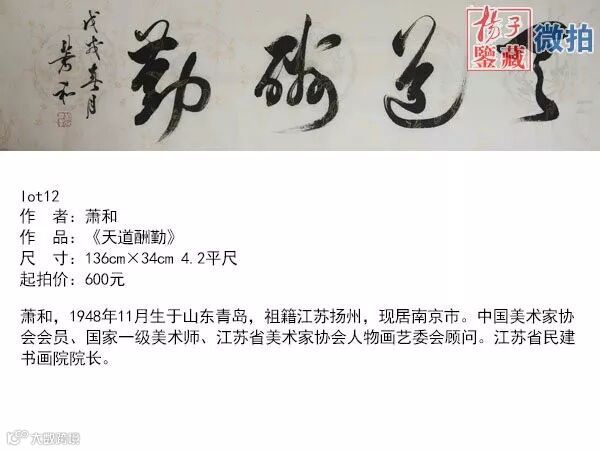 天道酬勤
戊戌春月
萧和
扬子
鑒藏
微拍
lot12
作 者：萧和
作 品：《天道酬勤》
尺 寸：136cm×34cm 4.2平尺
起拍价：600元
萧和，1948年11月生于山东青岛，祖籍江苏扬州，现居南京市。中国美术家协
会会员、国家一级美术师、江苏省美术家协会人物画艺委会顾问。江苏省民建
书画院院长。
大数跨境